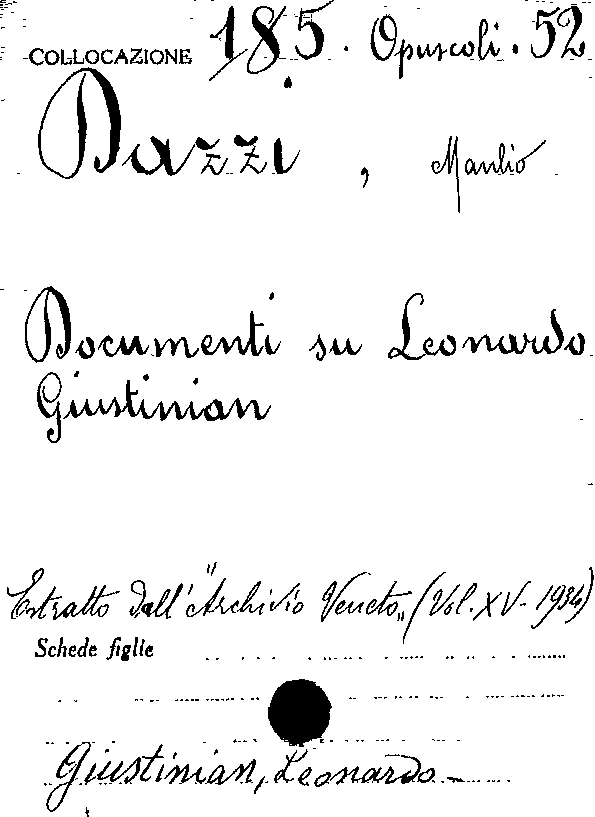 COLLOCAZIONE 185. Opuscoli. 52
Dazzi, Manlio
Documenti su Leonardo
Giustinian
Estratto dall' "Archivio Veneto„ (Vol. XV - 1934)
Schede figlie
Giustinian, Leonardo -